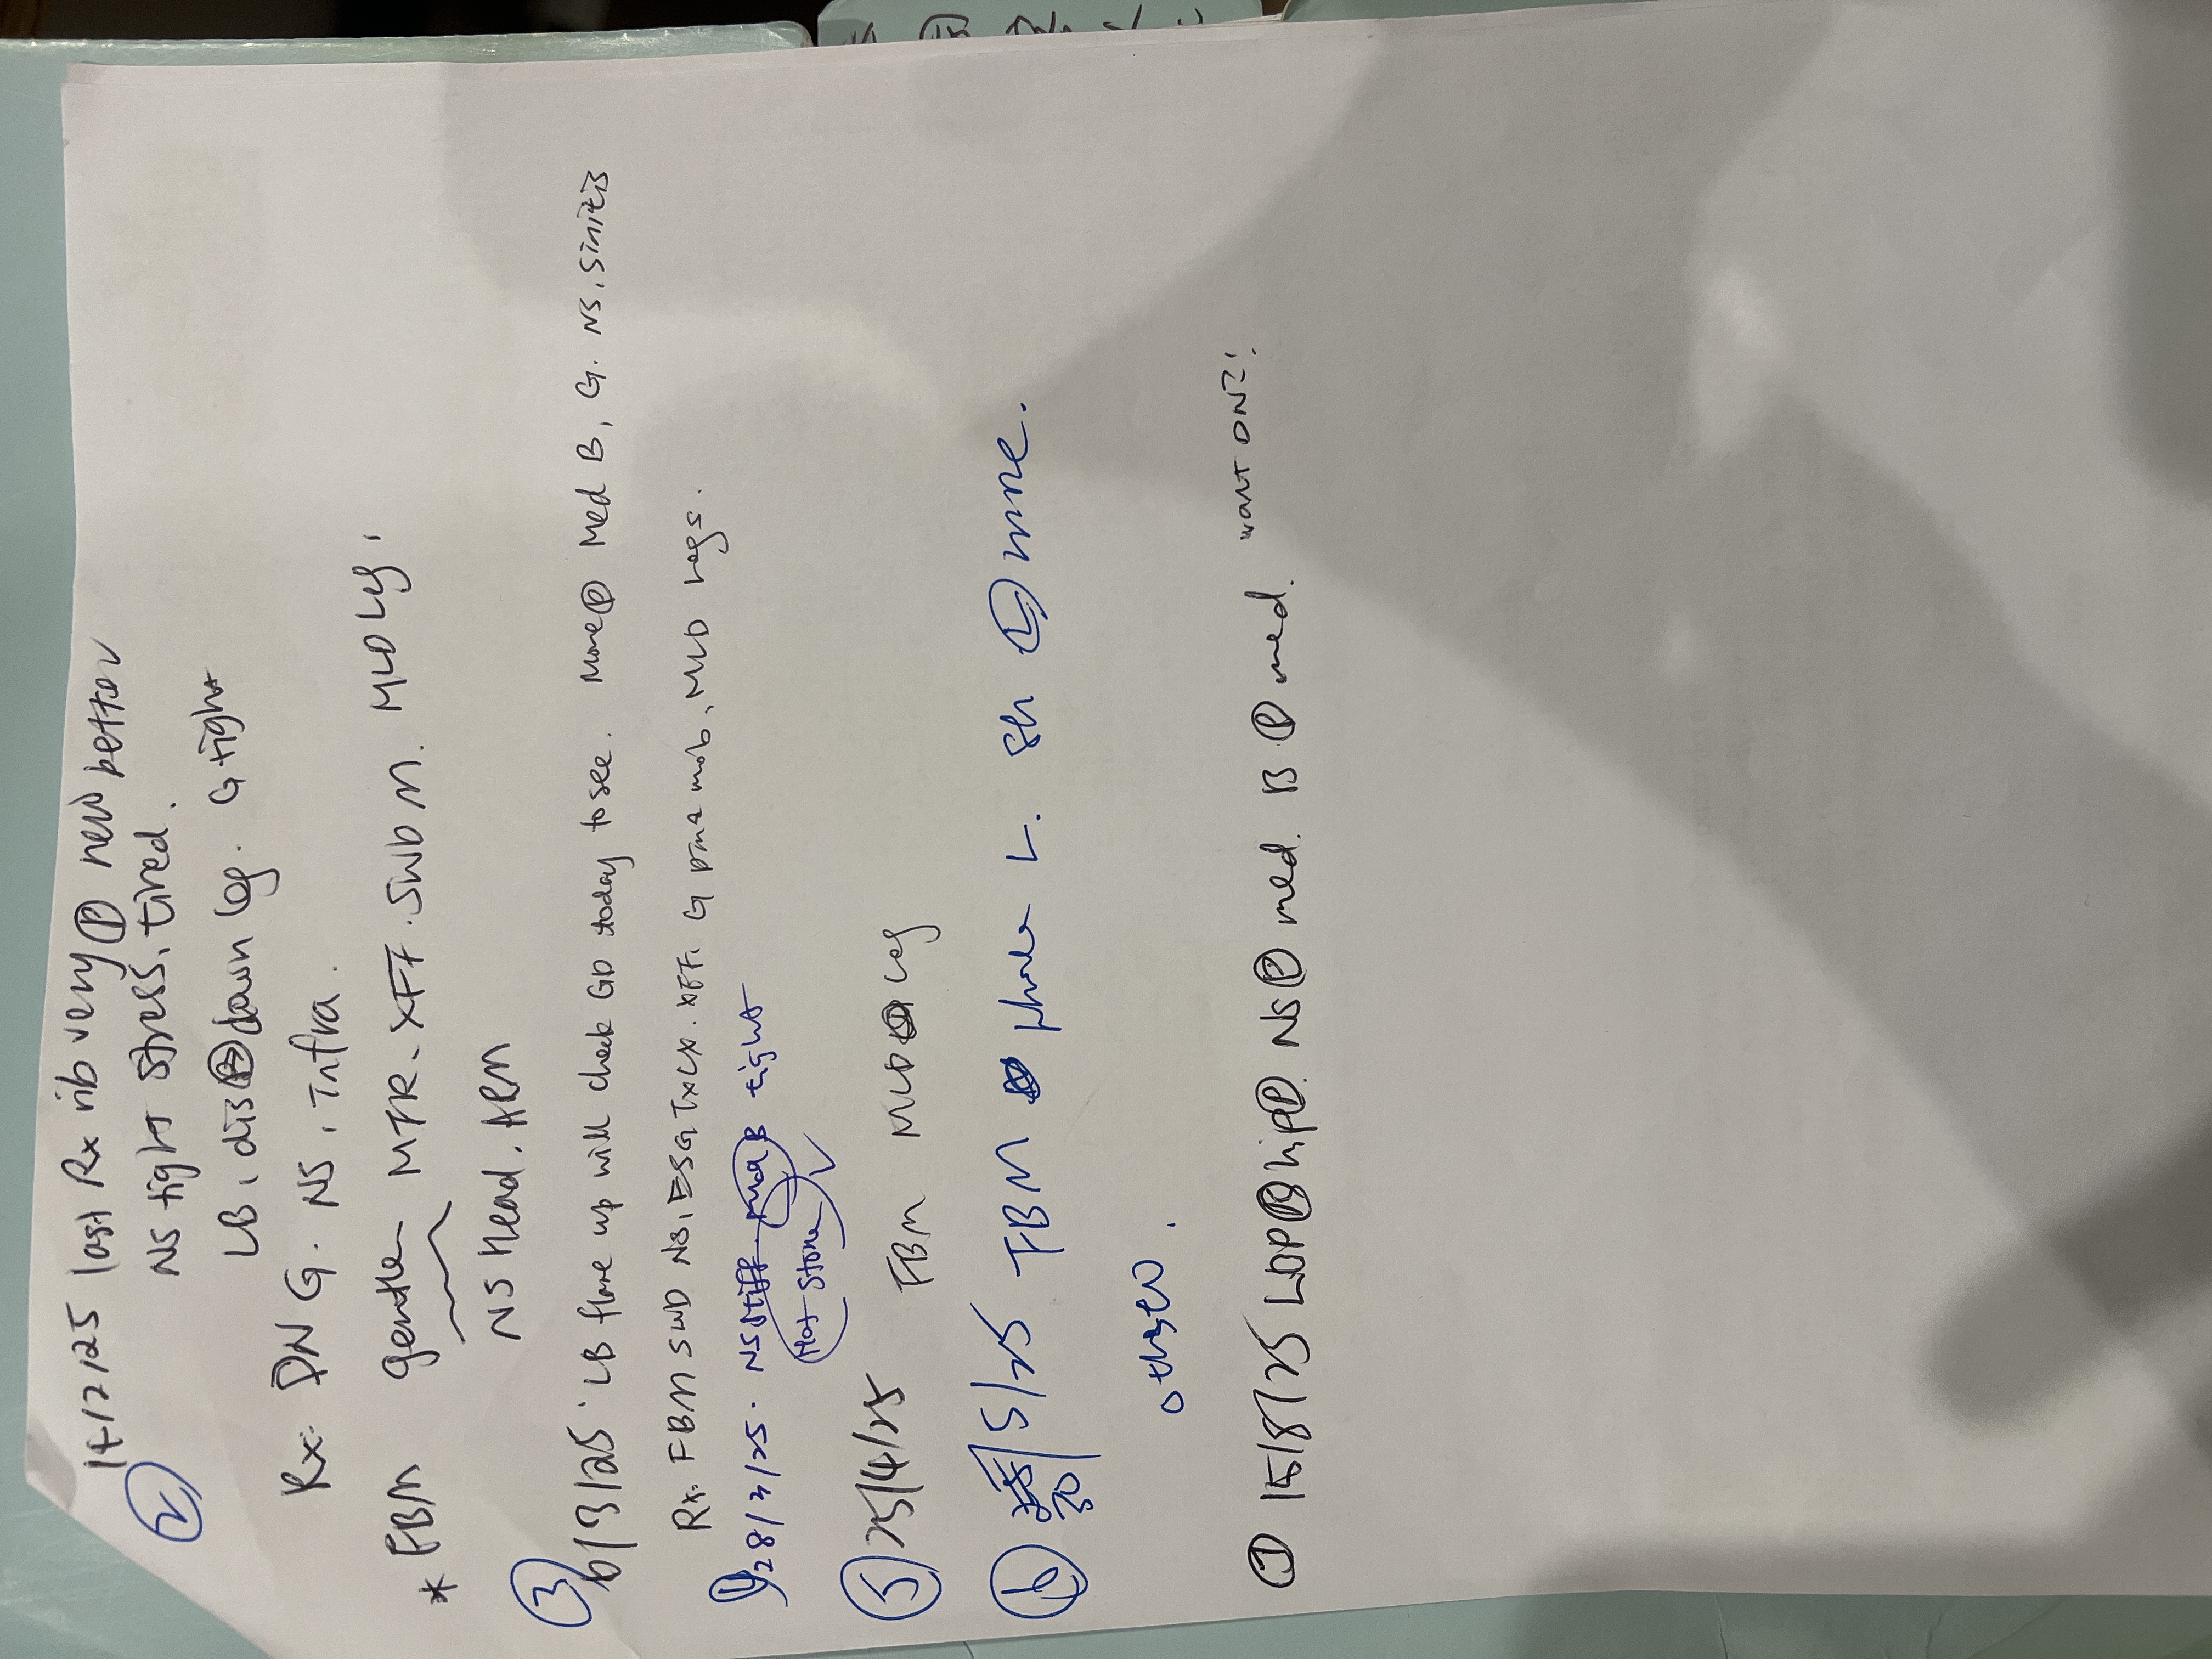 ② 14/2/25 last Rx rib very Ⓟ new better
NS tight stress, tired.
LB, dis Ⓟ down leg. G tight
Rx: DN G. NS, Infra.
* FBM gentle MTR. XFF. SWD M. MLD Leg,
NS Head, Arm
③ 6/3/25 LB flare up will check GD today to see. More Ⓟ Med B, G. NS, sinitis
Rx. FBM SWD NS, ESG TXLX. XFF. G pma mob, MLD Legs.
28/3/25. NS stiff. B tight
Hot Stone
⑤ 25/4/25 FBM MLD Leg
⑥ 30/5/25 FBM L. Sh Ⓛ mne.
① 15/8/25 LBP Ⓑ hip Ⓟ. NS Ⓟ med. B. Ⓟ med. "want DN?'.